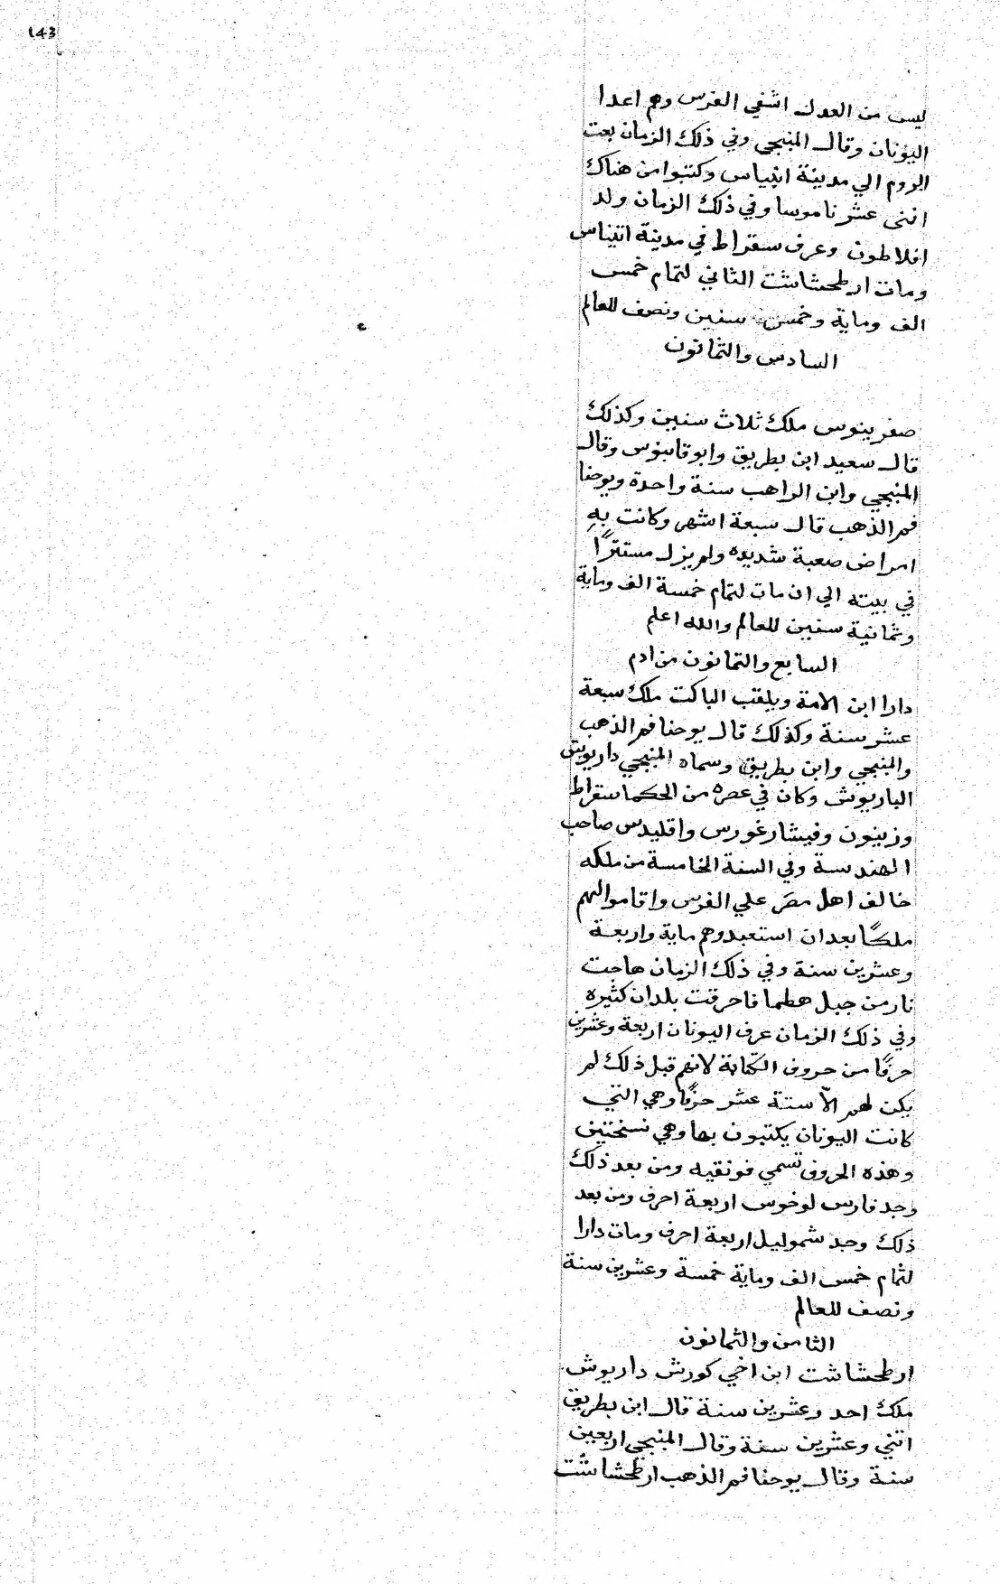 143
ليس من العدل اشفي الفرس وهم اعدا
اليونان وقال المنبجي وفي ذلك الزمان بعت
الروم الي مدينة اتيناس وكتبوا من هناك
اثنى عشر ناموسا وفي ذلك الزمان ولد
افلاطون وعرف سقراط في مدينة اتيناس
ومات ارطحشاشت الثاني لتمام خمس
الف وماية وخمس سنين ونصف للعالم
السادس والثمانون
صغرينوس ملك ثلاث سنين وكذلك
قال سعيد ابن بطريق وابوقاسوس وقال
المنبجي وابن الراهب سنة واحدة ويوحنا
فم الذهب قال سبعة اشهر وكانت بهِ
امراض صعبة شديده ولم يزل مستترًا
في بيته الي ان مات لتمام خمسة الف وماية
وثمانية سنين للعالم والله اعلم
السابع والثمانون من ادم
دارا ابن الامة ويلقب الباكت ملك سبعة
عشر سنة وكذلك قال يوحنا فم الذهب
والمنبجي وابن بطريق وسماه المنبجي داريوش
الباريوش وكان في عصره من الحكما سقراط
وزينون وفيشارغورس واقليدس صاحب
الهندسة وفي السنة الخامسة من ملكه
خالف اهل مصر علي الفرس واقاموالهم
ملكًا بعد ان استعبدوهم ماية واربعة
وعشرين سنة وفي ذلك الزمان هاجت
نار من جبل هطما فاحرقت بلدان كثيره
وفي ذلك الزمان عرف اليونان اربعة وعشرين
حرفًا من حروف الكتابة لانهم قبل ذلك لم
يكن لهم الّا ستة عشر حرفًا وهي التي
كانت اليونان يكتبون بها وهي نسختين
وهذه الحروف تسمي فونقيه ومن بعد ذلك
وجد فارس لوخوس اربعة احرف ومن بعد
ذلك وجد شموليل اربعة احرف ومات دارا
لتمام خمس الف وماية خمسة وعشرين سنة
ونصف للعالم
الثامن والثمانون
ارطحشاشت ابن اخي كورش داريوش
ملك احد وعشرين سنة قال ابن بطريق
اتني وعشرين سنة وقال المنبجي اربعين
سنة وقال يوحنا فم الذهب ارطحشاشت